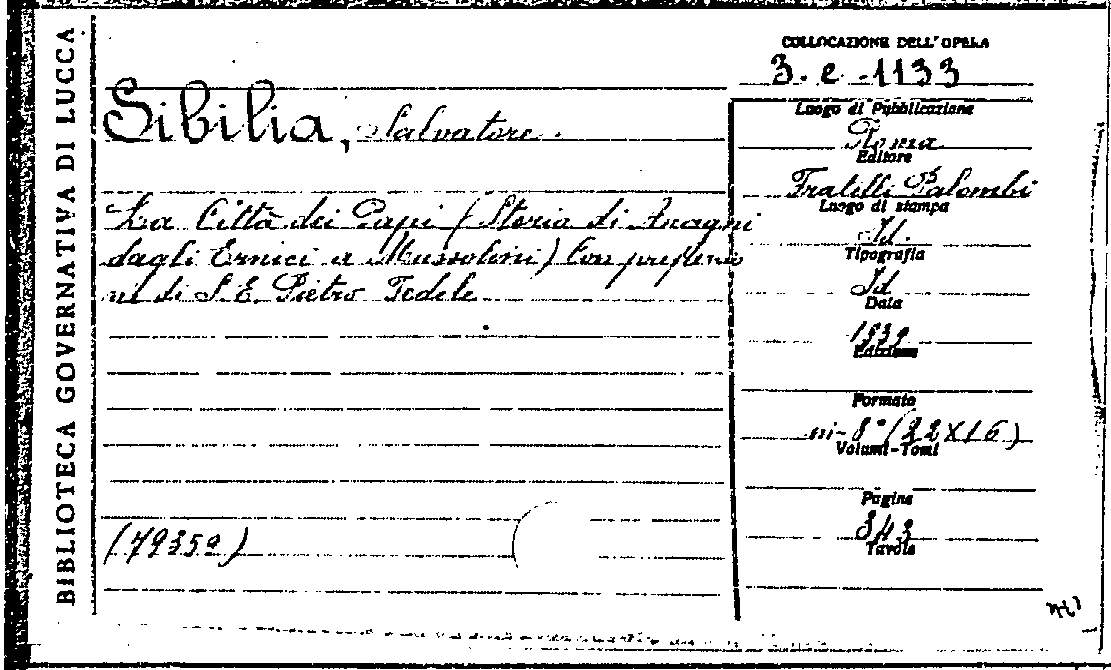 BIBLIOTECA GOVERNATIVA DI LUCCA
Sibilia, Salvatore.
La Città dei Papi (Storia di Anagni
dagli Ernici a Mussolini) Con prefazio
ne di S. E. Pietro Fedele
(79359)
COLLOCAZIONE DELL'OPERA
3. e. -1133
Luogo di Pubblicazione
Roma
Editore
Fratelli Palombi
Luogo di stampa
Id.
Tipografia
Id
Data
1939
Edizione
Formato
in-8° (22X16)
Volumi-Tomi
Pagine
343
Tavole